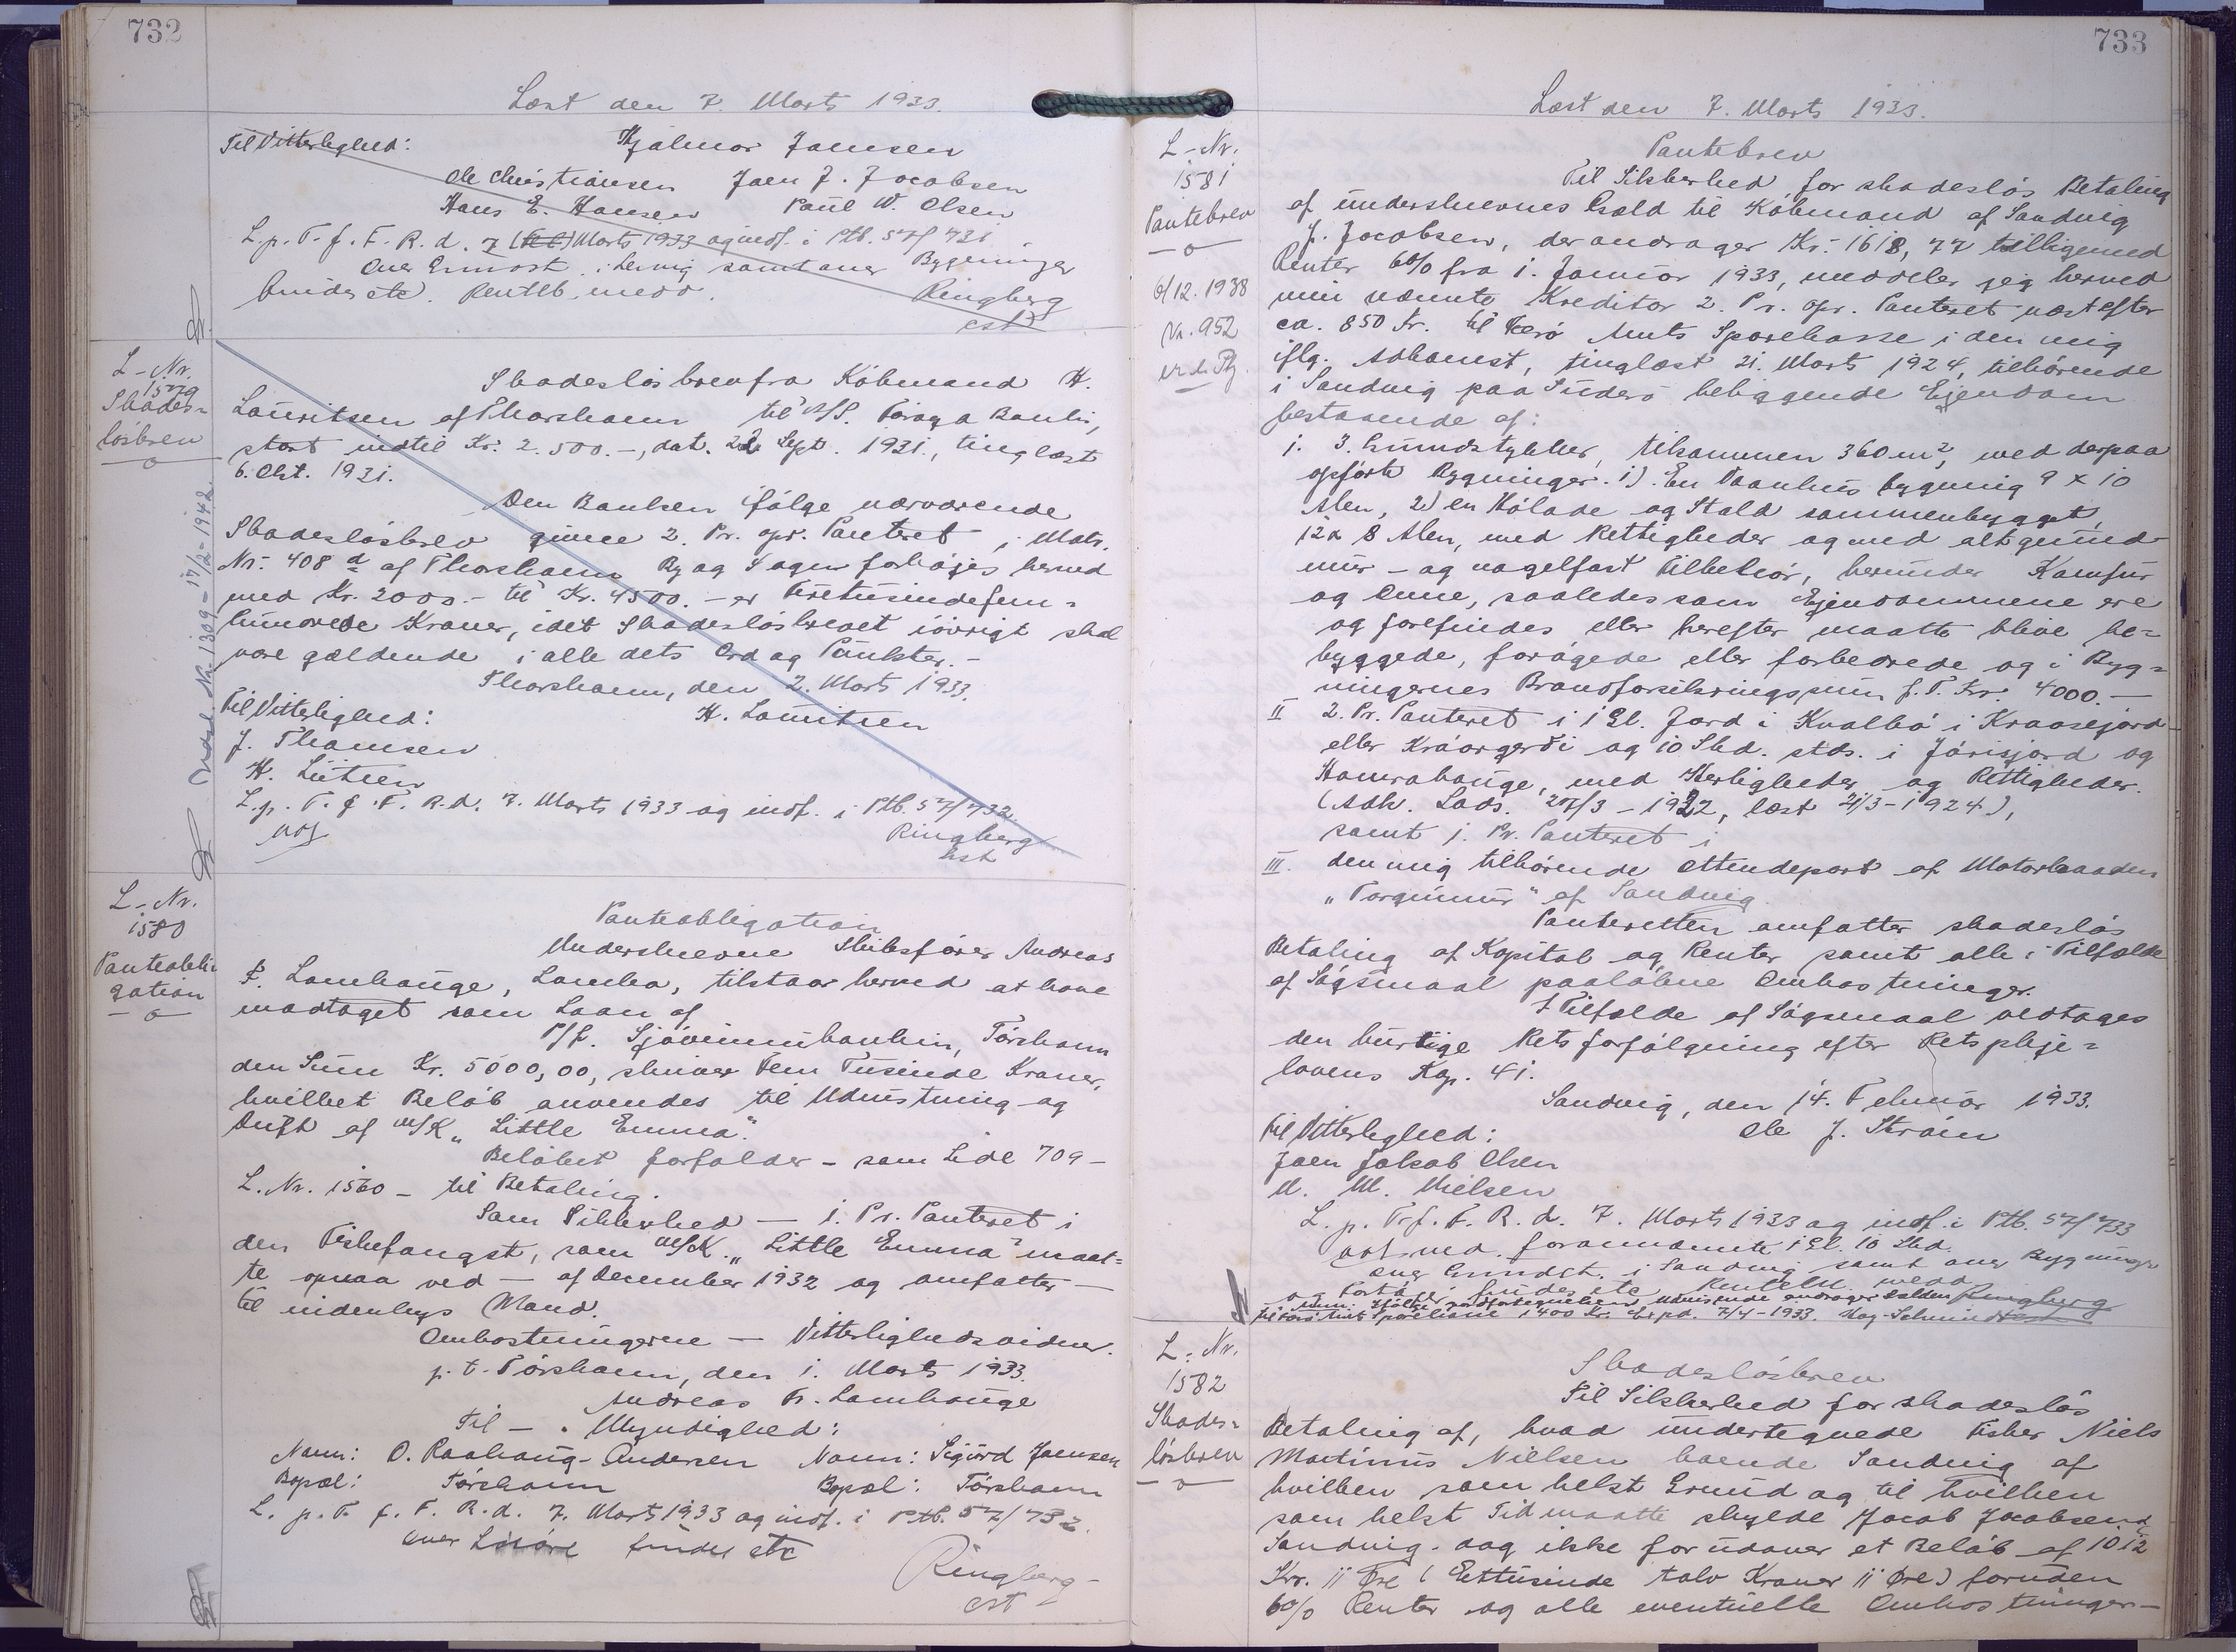 732
Læst den 7. Marts 1933.
Til Vitterlighed: Hjalmar Jansen
Ole Christiansen Joen J. Jacobsen
Hans E. Hansen Paul W. Olsen
L. p. T. f. F. R. d. 7 Marts 1933 og indf. i Ptb. 57/731.
over samt over Bygninger
findes etc. Renteb. medd. Ringberg
cst
L-Nr.
1579
Skades=
løsbrev
Skadesløsbrev fra Købmand H.
Lauritsen af Thorshavn til A/S. Føroya Banki,
stort indtil Kr. 2.500.-, dat. 22 Sept. 1931, tinglæst
6. Okt. 1931.
Den Banken ifølge nærværende
Skadesløsbrev givne 2. Pr. opr. Panteret i Matr.
Nr. 408 d af Thorshavn By og Sogn forhøjes herved
med Kr. 2000.- til Kr. 4500.- er Firetusindefem=
hundrede Kroner, idet Skadesløsbrevet iøvrigt skal
være gældende i alle dets Ord og Punkter.-
Thorshavn, den 2. Marts 1933.
Til Vitterlighed: H. Lauritsen
J. Thomsen
H. Lützen
L. p. T. f. F. R. d. 7. Marts 1933 og indf. i Ptb. 57/732.
Ringberg
cst
Nr. 1309 - 17/2 - 1942.
L-Nr.
1580
Panteobli=
gation
Panteobligation
Underskrevne Skibsfører Andreas
Fr. Lamhauge, Lamba, tilstaar herved at have
modtaget som Laan af
P/f. Sjóvinnubankin, Tórshavn
den Sum Kr. 5000,00, skriver Fem Tusinde Kroner,
hvilket Beløb anvendes til Udrustning og
Drift af M/K „Little Emma".
Beløbet forfalder - som Side 709 -
L. Nr. 1560 - til Betaling.
Som Sikkerhed - 1. Pr. Panteret i
den Fiskefangst, som M/K. „Little Emma" maat=
te opnaa ved - af December 1932 og omfatter -
til indenbys Mand.
Omkostningerne - Vitterlighedsvidner.
p. t. Tórshavn, den 1. Marts 1933.
Andreas Fr. Lamhauge
Til - . Myndighed:
Navn: O. Raahaug-Andersen Navn: Sigurd Joensen
Bopæl: Tórshavn Bopæl: Tórshavn
L. p. T. f. F. R. d. 7. Marts 1933 og indf. i Ptb. 57/732.
over Løsøre findes etc
Ringberg
cst
733
Læst den 7. Marts 1933.
L-Nr.
1581
Pantebrev
6/12. 1938
Nr. 952
Pantebrev
Til Sikkerhed for skadesløs Betaling
af underskrevnes Gæld til Købmand af Sandvig
J. Jacobsen, der andrager Kr. 1618,77 tilligemed
Renter 6% fra 1. Januar 1933, meddeler jeg herved
min nævnte Kreditor 2. Pr. opr. Panteret næst efter
ca. 850 Kr. til Færø Amts Sparekasse i den mig
iflg. Adkomst, tinglæst 21. Marts 1924, tilhørende
i Sandvig paa Suderø beliggende Ejendom
bestaaende af:
1. 3. Grundstykker, tilsammen 360 m2, med derpaa
opførte Bygninger. 1). En Vaanhus bygning 9 x 10
Alen, 2) en Hølade og Stald sammenbygget,
12 x 8 Alen, med Rettigheder og med alt grund-
mur- og nagelfast Tilbehør, herunder Komfur
og Ovne, saaledes som Ejendommene ere
og forefindes eller herefter maatte blive be=
byggede, forøgede eller forbedrede og i Byg=
ningernes Brandforsikringssum p. T. Kr. 4000.-
II 2. Pr. Panteret i 1 Gl. Jord i Kvalbø i Kraasejord
eller Kráargerði og 10 Skd. stds. i Járisjord og
Hamrahauge, med Herligheder og Rettigheder.
(Adk. Lods. 27/3 - 1922, læst 21/3 - 1924),
samt 1. Pr. Panteret i
III. den mig tilhørende Ottendepart af Motorbaaden
„Torgunnur" af Sandvig.
Panteretten omfatter skadesløs
Betaling af Kapital og Renter samt alle i Tilfælde
af Søgsmaal paaløbne Omkostninger.
I Tilfælde af Søgsmaal vedtages
den hurtige Retsforfølgning efter Retspleje=
lovens Kap. 41.
Sandvig, den 14. Februar 1933.
Til Vitterlighed: Ole J. Strøm
Joen Jakob Olsen
M. M. Nielsen
L. p. T. f. F. R. d. 7. Marts 1933 og indf. i Ptb. 57/733
forannævnte 1 Gl. 10 Skd.
over Grundst. i Sandvig samt over Bygninger
findes etc Renteb. medd. Ringberg
andrager Gælden
til Færø Amts Sparekasse 1400 Kr. Exp. d. 7/4 - 1933.
L-Nr.
1582
Skades=
løsbrev
Skadesløsbrev
Til Sikkerhed for skadesløs
Betaling af, hvad undertegnede Fisker Niels
Martinus Nielsen boende Sandvig af
hvilken som helst Grund og til hvilken
som helst Tid maatte skylde Jacob Jacobsen
Sandvig. dog ikke forudover et Beløb af 1012
Kr. 11 Øre (Ettusinde tolv Kroner 11 Øre) foruden
6% Renter og alle eventuelle Omkostninger-